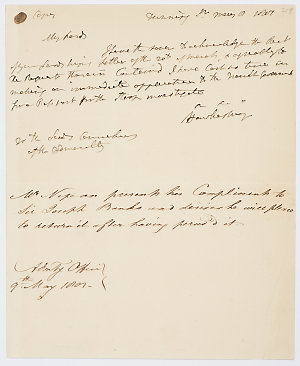 Copy
Downing Str May 8 1801
My Lords
I have the honor to acknowledge the Rect
of your Lordships letter of the 20th of March, & agreeably to
the request therein contained I have lost no time in
making an immediate application to the French Government
for a Passport for the Sloop Investigator
Hawkesbury
To the Lords Commissioners
of the Admiralty
Mr. Nepean presents his Compliments to
Sir Joseph Banks and desires he will please
to return it after having perused it
Admty Office
9th May 1801